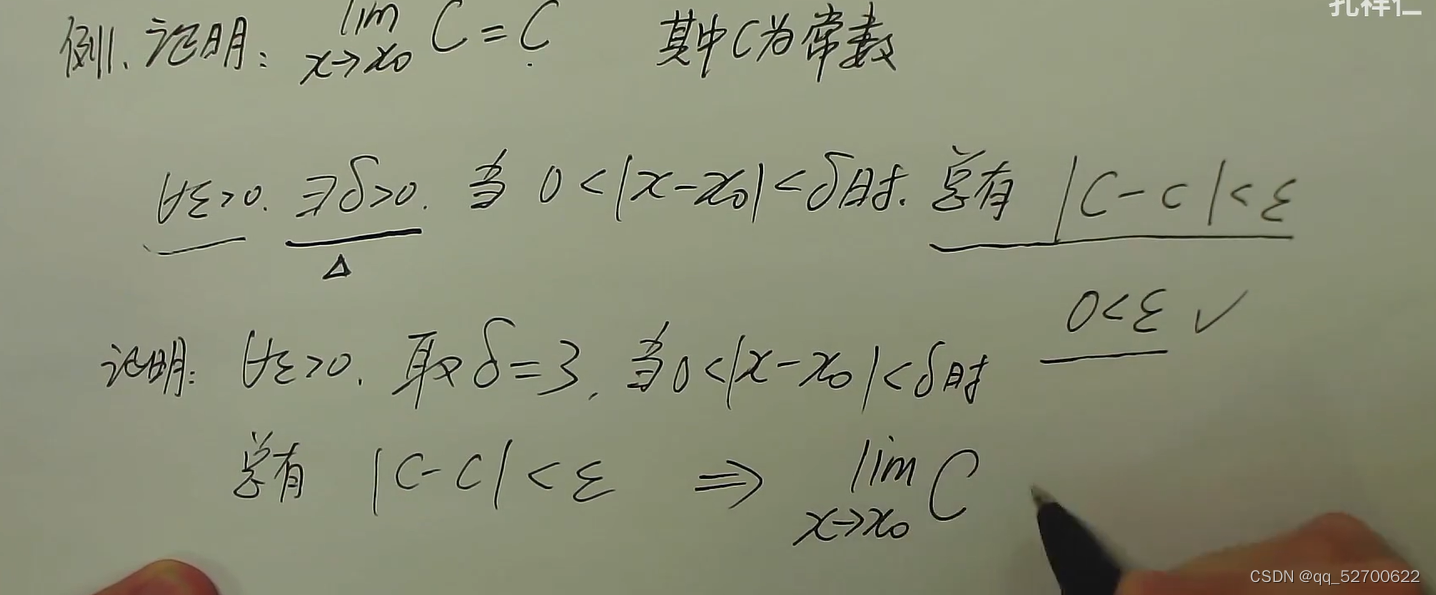 孔祥仁
例1. 证明: lim C = C 其中C为常数
x→x₀
∀ε>0. ∃δ>0. 当 0<|x-x₀|<δ时. 总有 |C-C|<ε
Δ
0<ε ✓
证明: ∀ε>0. 取δ=3, 当0<|x-x₀|<δ时
总有 |C-C|<ε ⇒ lim C
x→x₀
CSDN @qq_52700622